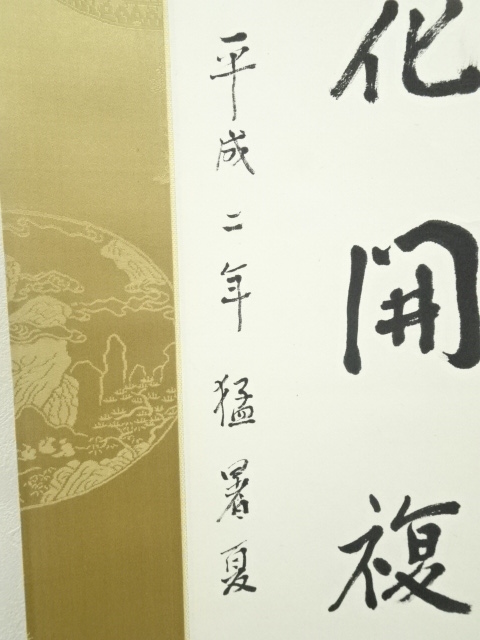 化開複
平成二年猛暑夏